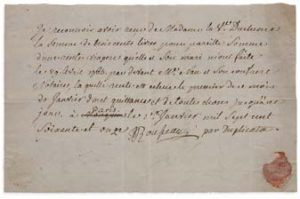 Je reconnois avoir reçu de Madame la Vve. Duchesne
la Somme de trois cents livres pour pareille Somme
d'une rente viagere qu'elle et Son mari m'ont faite
le par devant Me. et Son confrere
Notaire, la quelle rente est echeue le premier de ce mois
de Janvier dont quittance et de toutes choses jusqu'à ce
jour, à Paris le Janvier mil Sept cent
Soixante et onze JJRousseau par duplicata